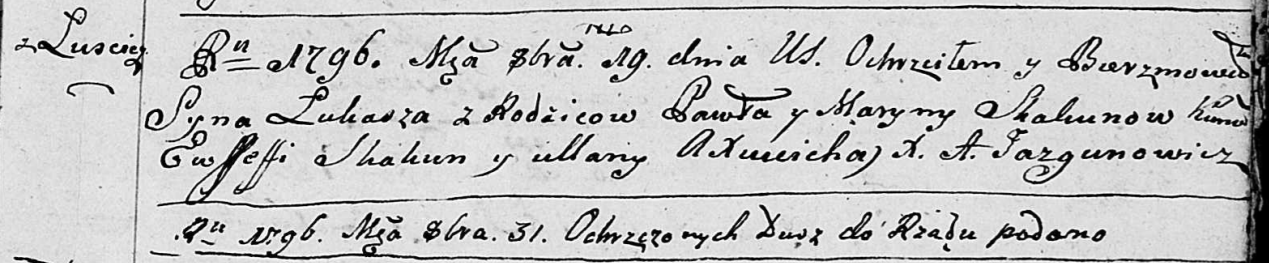 z Luscicz
Rn 1796. Mca 8bra. 19. dnia US. Ochrzciłem y Bierzmowałe
Syna Łukasza z Rodzicow Pawła y Maryny Skakunow Kumow
Ewsteffi Skakun y Ullany X. A. Jazgunowicz
Rn 1796. Mca 8bra. 31. Ochrzczonych Dusz do Rządu podano